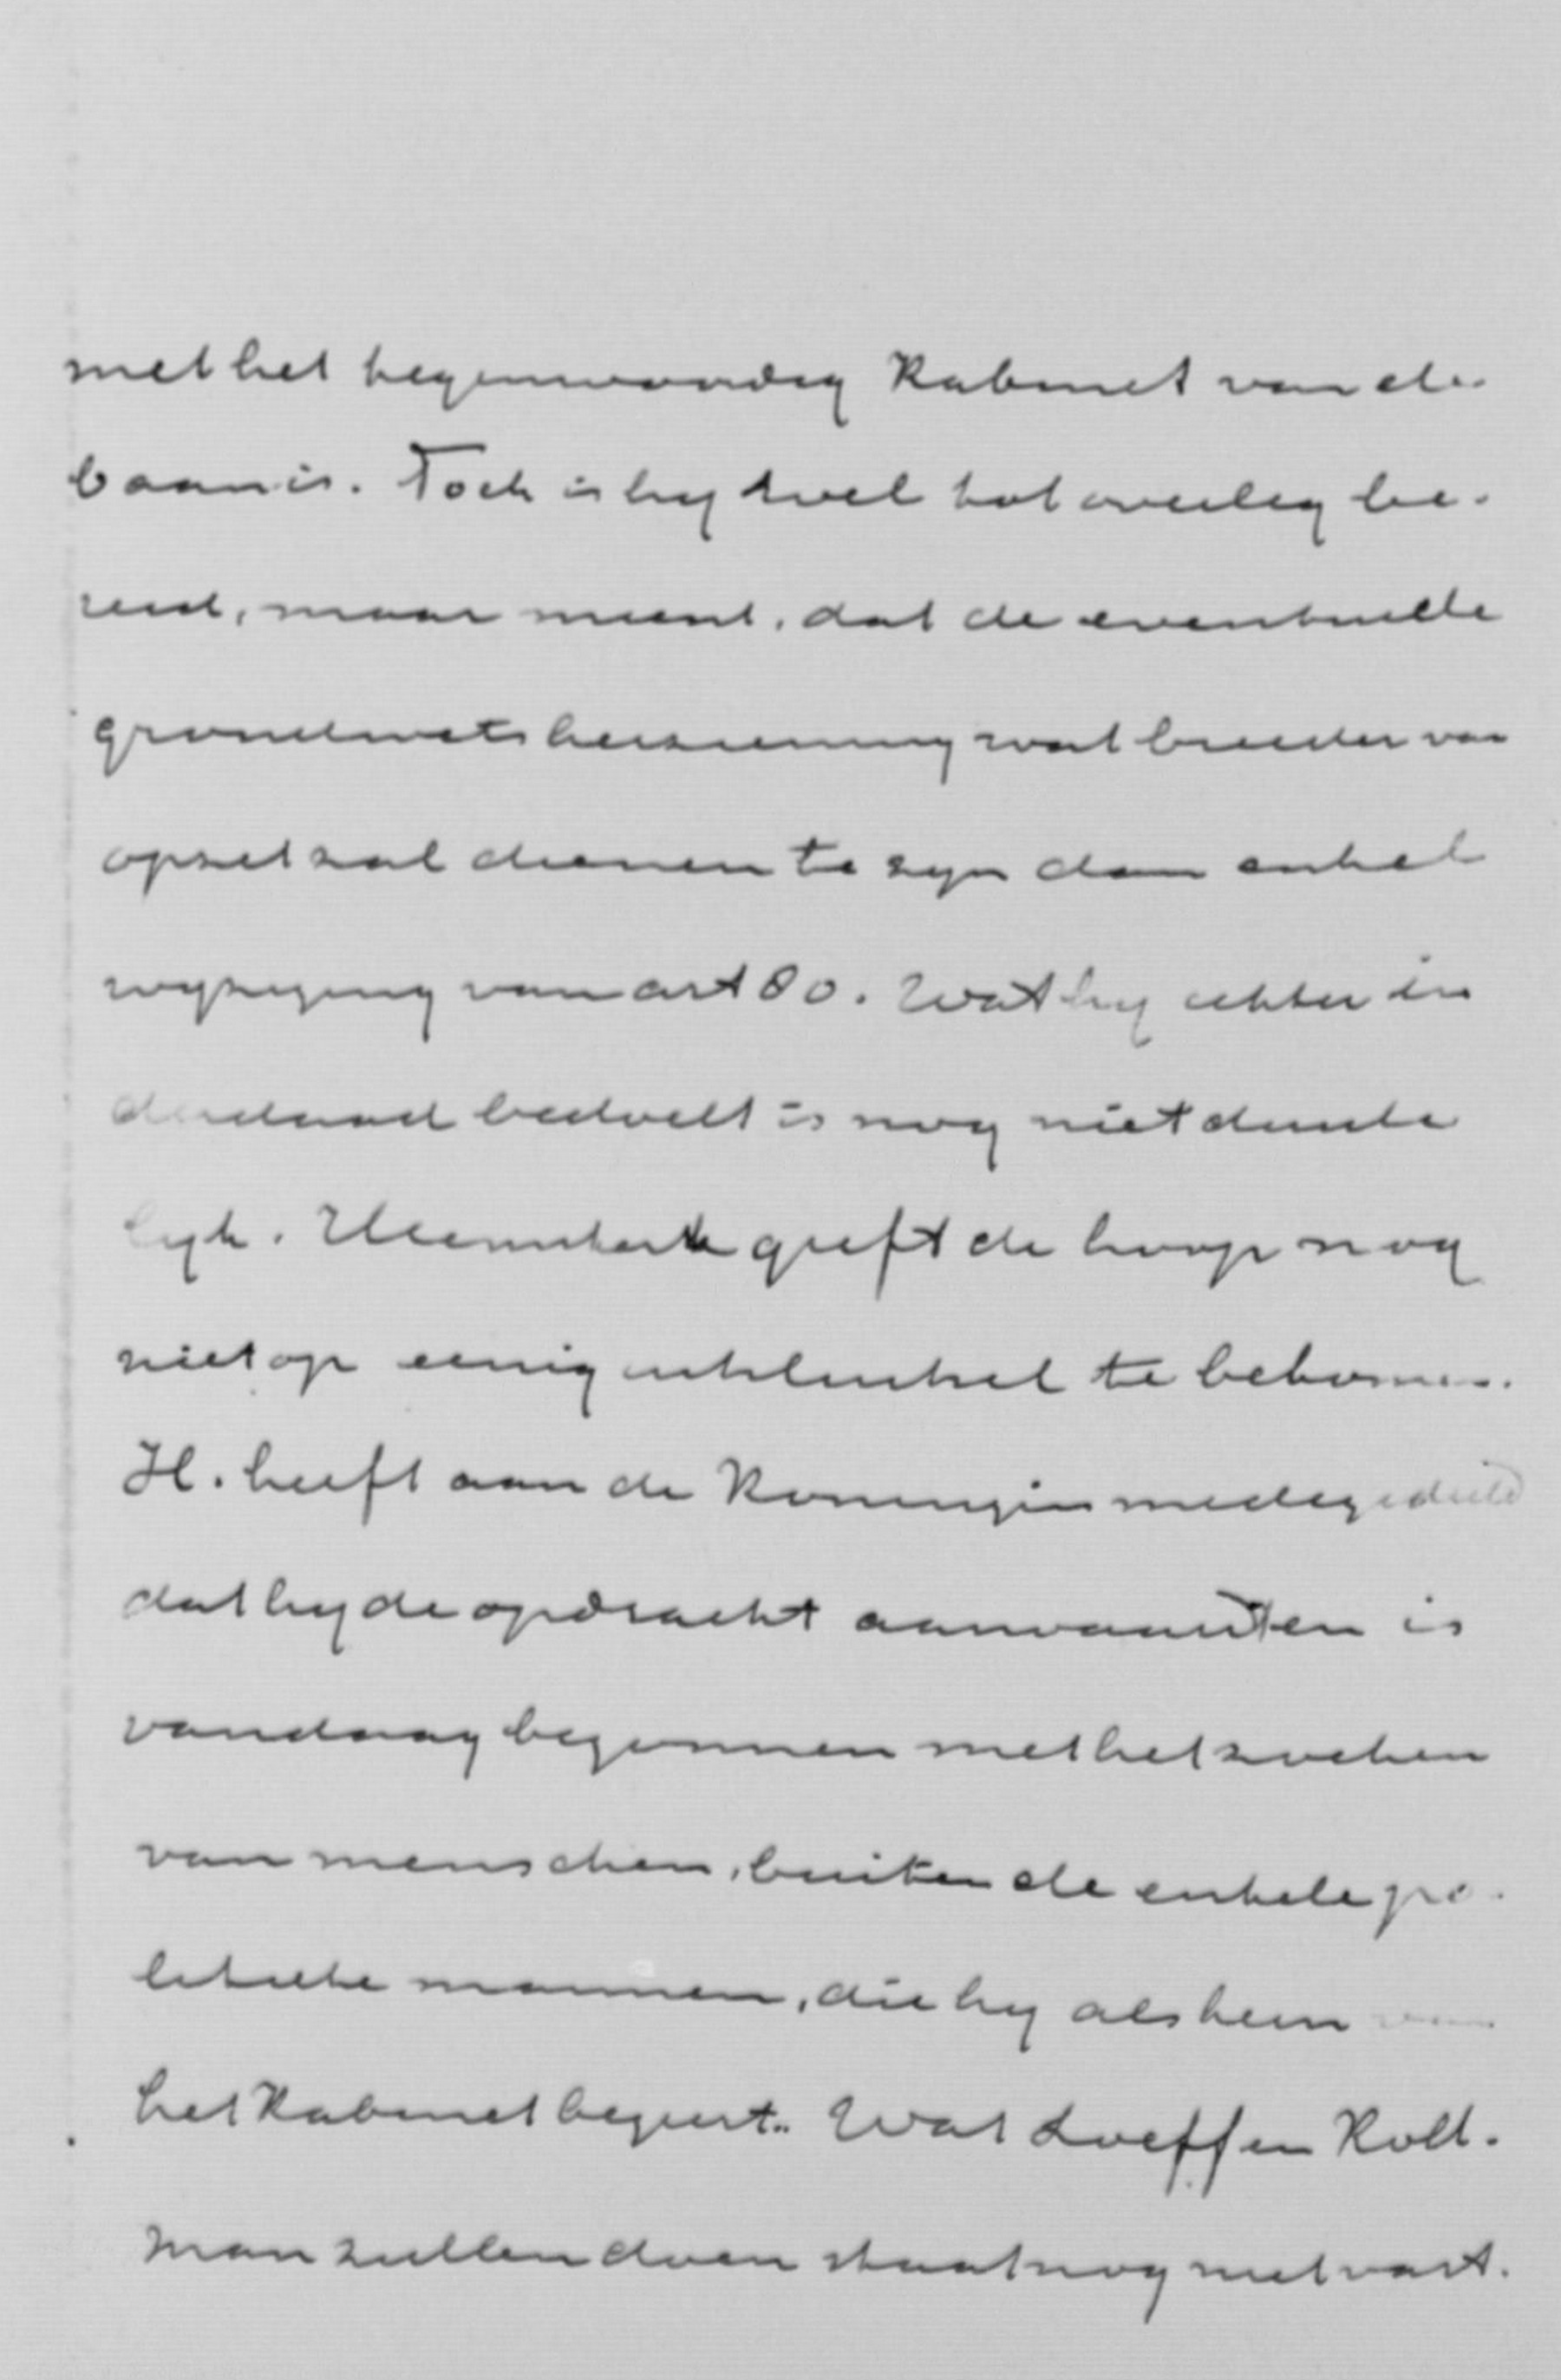 met het tegenwoordig Kabinet van de
baan is. Toch is hy wel tot overleg be-
reid, maar meent, dat de eventueele
grondwetsherziening wat breeder van
opzet zal dienen te zyn dan enkel
wyziging van art 80. Wat hy echter in
derdaad bedoelt is nog niet duide
lyk. Heemskerk geeft de hoop nog
niet op eenig uitsluitsel te bekomen.
H. heeft aan de Koningin medegedeeld
dat hy de opdracht aanvaardt en is
vandaag begonnen met het zoeken
van menschen, buiten de enkele po-
litieke mannen, die hy als kern van
het Kabinet begeert. Wat Loeff en Kolk-
man zullen doen staat nog niet vast.